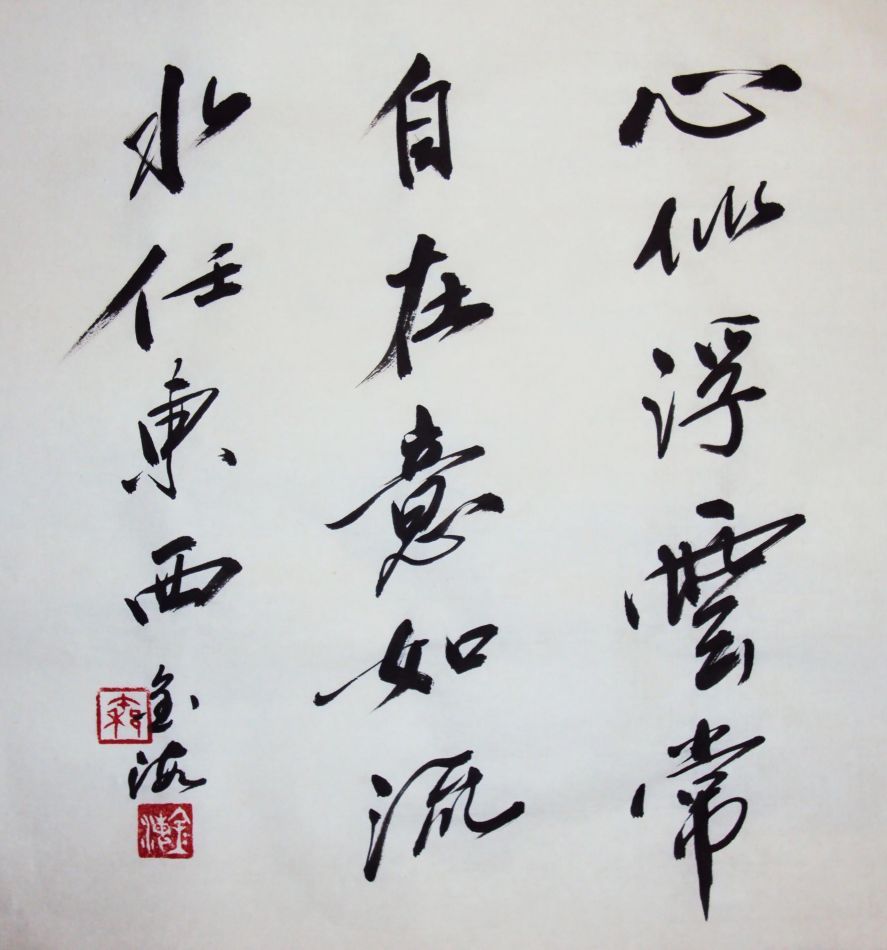 心似浮雲常
自在意如流
水任東西
金海